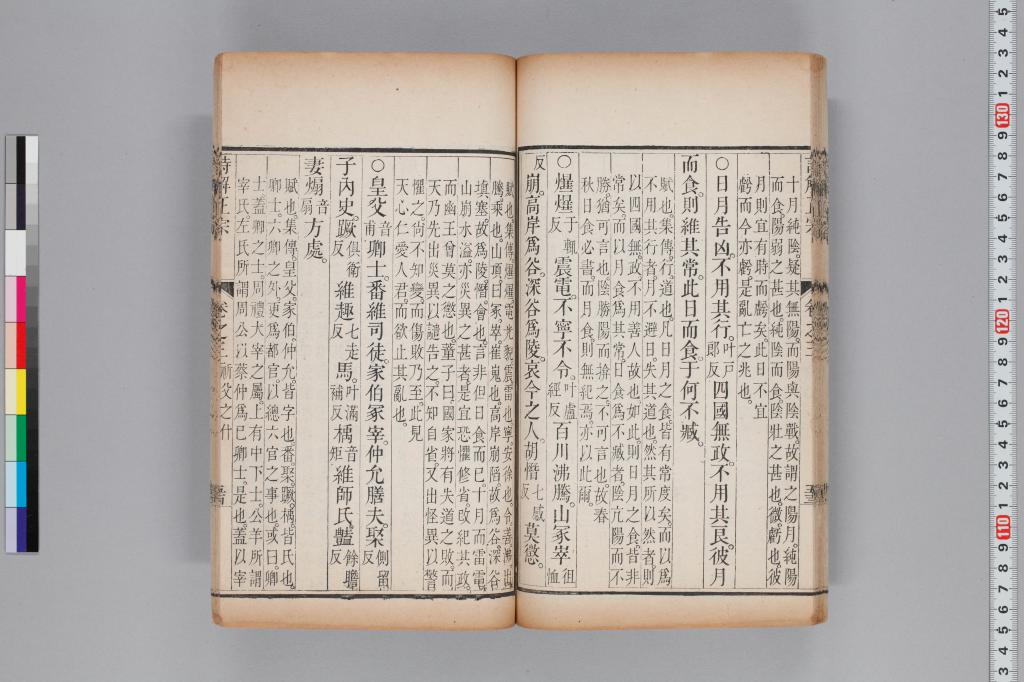 十月純陰疑其無陽而陽與陰戰故謂之陽月純陽
而食陽弱之甚也純陰而食陰壯之甚也微虧也彼
月則宜有時而虧矣此日不宜
虧而今亦虧是亂亡之兆也
〇日月告凶不用其行叶戶郎反四國無政不用其良彼月
而食則維其常此日而食于何不臧
賦也集傳行道也凡日月之食皆有常度矣而以爲
不用其行者月不避日失其道也然其所以然者則
以四國無政不用善人故也如此則日月之食皆非
常矣而以月食爲其常日食爲不臧者陰亢陽而不
勝猶可言也陰勝陽而揜之不可言也故春
秋日食必書而月食則無紀焉亦以此爾
〇爗爗于輒反震電不寧不令叶盧經反百川沸騰山冢崒徂恤
反崩高岸爲谷深谷爲陵哀今之人胡憯七感反莫懲
賦也集傳爗爗電光貌震雷也寧安徐也令善沸出
騰乘也山頂曰冢崒崔嵬也高岸崩陷故爲谷深谷
塡塞故爲陵憯曾也言非但日食而已十月而雷電
山崩水溢亦災異之甚者是宜恐懼修省改紀其政
而幽王曾莫之懲也董子曰國家將有失道之敗而
天乃先出災異以譴告之不知自省又出怪異以警
懼之尙不知變而傷敗乃至此見
天心仁愛人君而欲止其亂也
〇皇父音甫卿士番維司徒家伯冢宰仲允膳夫棸側留反
子內史蹶俱衛反維趣七走反馬叶滿補反楀音矩維師氏豔餘贍反
妻煽音扇方處
賦也集傳皇父家伯仲允皆字也番棸蹶楀皆氏也
卿士六卿之外更爲都官以總六官之事也或曰卿
士蓋卿之士周禮太宰之屬上有中下士公羊所謂
宰士左氏所謂周公以蔡仲爲己卿士是也蓋以宰
詩解正宗 卷之三 祈父之什